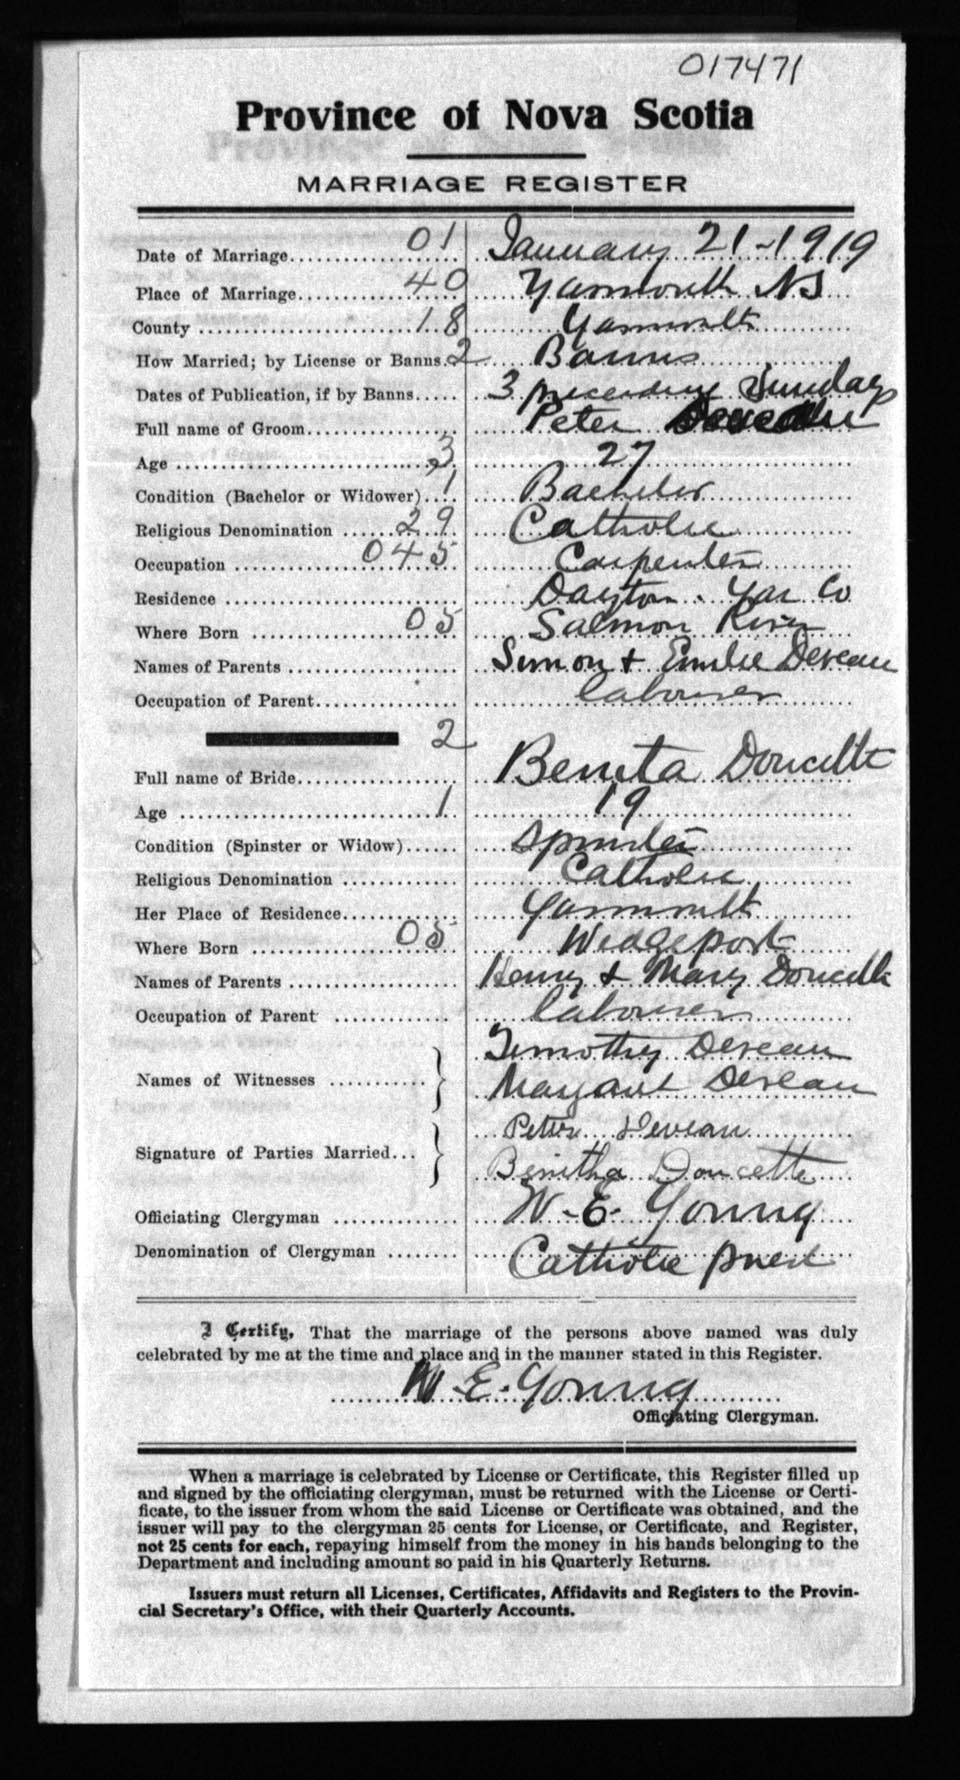 017471
Province of Nova Scotia
MARRIAGE REGISTER
Date of Marriage 01 January 21-1919
Place of Marriage 40 Yarmouth NS
County 18 Yarmouth
How Married; by License or Banns. 2 Banns
Dates of Publication, if by Banns 3 preceding Sundays
Full name of Groom Peter
Age 3 27
Condition (Bachelor or Widower) 1 Bachelor
Religious Denomination 29 Catholic
Occupation 045 Carpenter
Residence Dayton. Yar Co
Where Born 05 Salmon River
Names of Parents Simon & Emilie Deveau
Occupation of Parent labourer
2
Full name of Bride Benita Doucette
Age 1 19
Condition (Spinster or Widow) Spinster
Religious Denomination Catholic
Her Place of Residence Yarmouth
Where Born 05 Wedgeport
Names of Parents Henry & Mary Doucette
Occupation of Parent labourer
Names of Witnesses } Timothy Deveau
Margaret Deveau
Signature of Parties Married } Peter Deveau
Benitha Doucette
Officiating Clergyman W-E- Young
Denomination of Clergyman Catholic priest
I Certify, That the marriage of the persons above named was duly
celebrated by me at the time and place and in the manner stated in this Register.
W-E-Young
Officiating Clergyman.
When a marriage is celebrated by License or Certificate, this Register filled up
and signed by the officiating clergyman, must be returned with the License or Certi-
ficate, to the issuer from whom the said License or Certificate was obtained, and the
issuer will pay to the clergyman 25 cents for License, or Certificate, and Register,
not 25 cents for each, repaying himself from the money in his hands belonging to the
Department and including amount so paid in his Quarterly Returns.
Issuers must return all Licenses, Certificates, Affidavits and Registers to the Provin-
cial Secretary's Office, with their Quarterly Accounts.